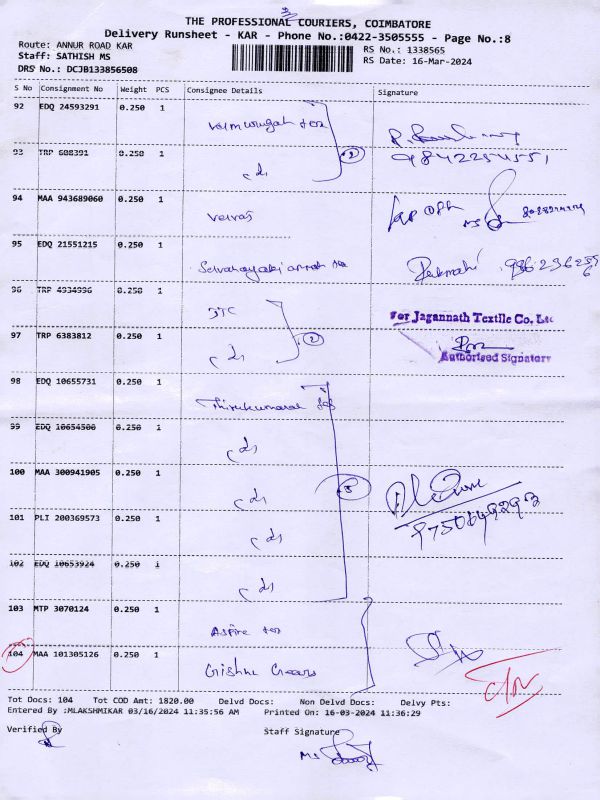 THE PROFESSIONAL COURIERS, COIMBATORE
Delivery Runsheet - KAR - Phone No.:0422-3505555 - Page No.:8
Route: ANNUR ROAD KAR
Staff: SATHISH MS
DRS No.: DCJ0133856508
RS No.: 1338565
RS Date: 16-Mar-2024
S No Consignment No Weight PCS Consignee Details Signature
92 EDQ 24593291 0.250 1
93 TRP 608391 0.250 1 9842254551
94 MAA 943689060 0.250 1
95 EDQ 21551215 0.250 1
96 TRP 4934936 0.250 1 JTC
For Jagannath Textile Co. Ltd
97 TRP 6383812 0.250 1 2
Authorised Signatory
98 EDQ 10655731 0.250 1 Thirukumaran
99 EDQ 10654500 0.250 1
100 MAA 300941905 0.250 1 5
101 PLI 200369573 0.250 1
102 EDQ 10653924 0.250 1
103 MTP 3070124 0.250 1 Aspire tex
104 MAA 101305126 0.250 1 Crishna Gears
Tot Docs: 104 Tot COD Amt: 1820.00 Delvd Docs: Non Delvd Docs: Delvy Pts:
Entered By :MLAKSHMIKAR 03/16/2024 11:35:56 AM Printed On: 16-03-2024 11:36:29
Verified By Staff Signature
MS